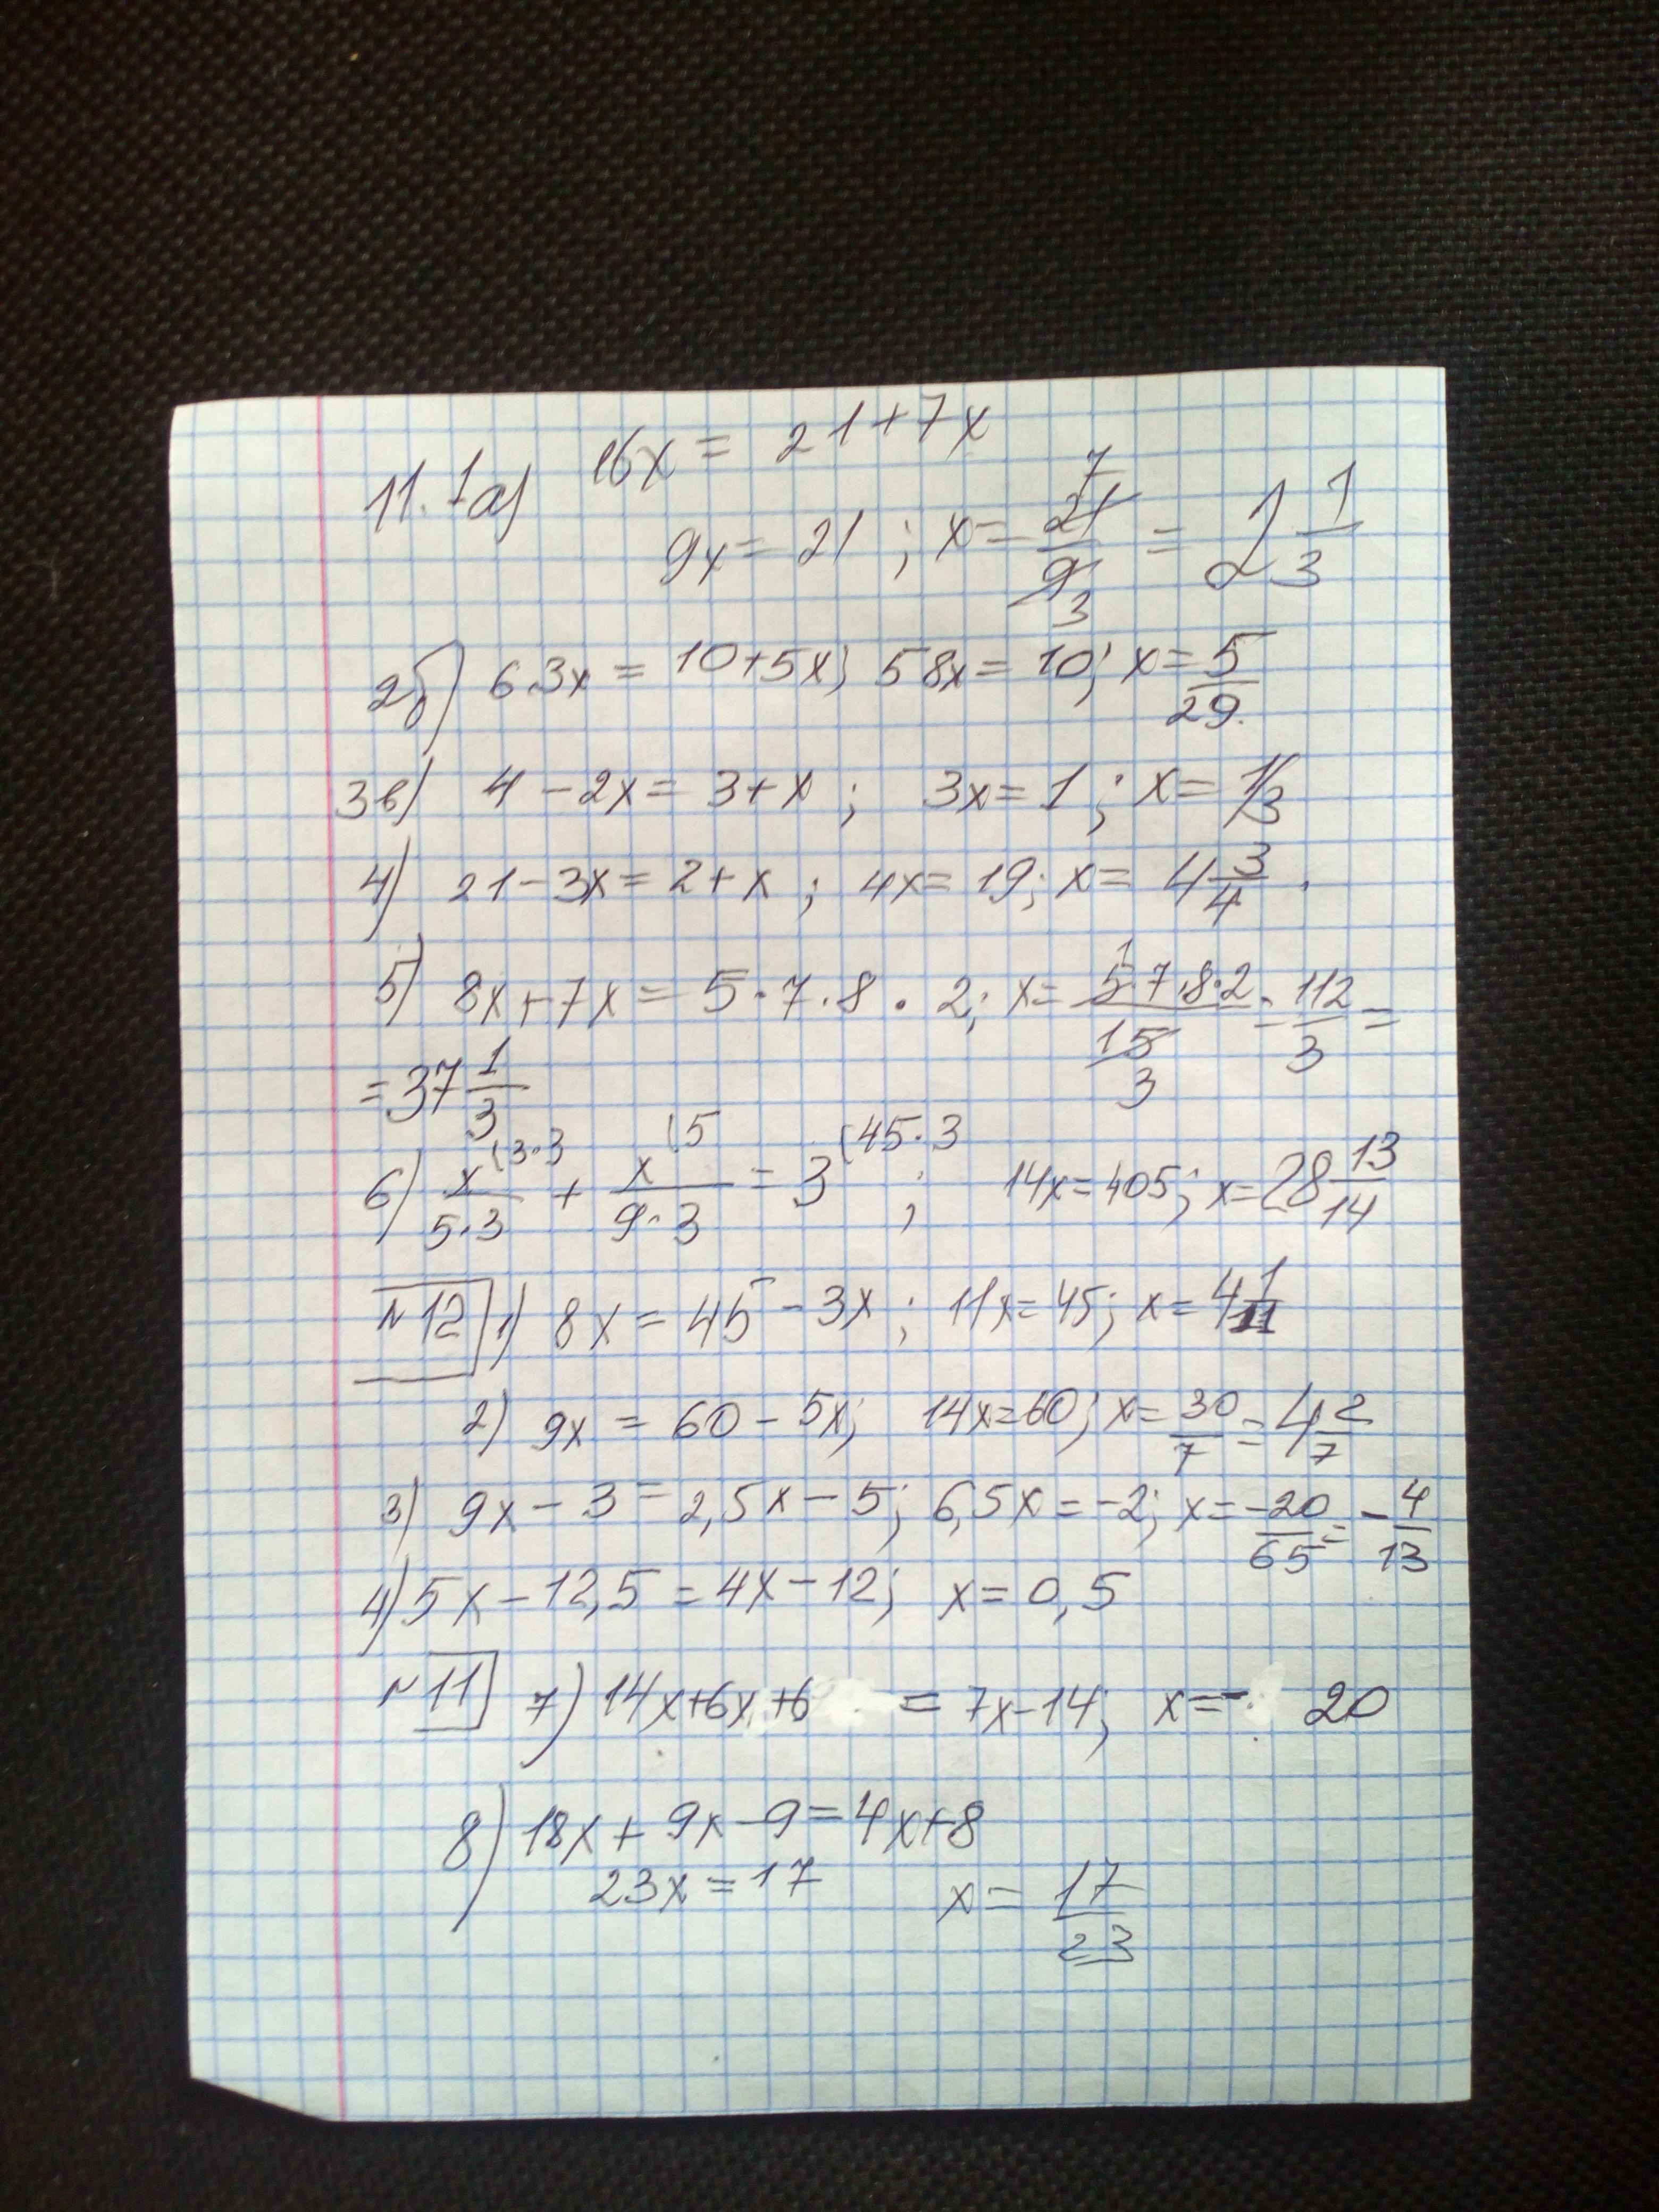 11. 1а) 16x = 21+7x
9x = 21 ; x = 21/9 (7/3) = 2 1/3
2б) 63x = 10+5x; 58x = 10; x = 5/29.
3в) 4 - 2x = 3 + x ; 3x = 1 ; x = 1/3
4) 21 - 3x = 2 + x ; 4x = 19; x = 4 3/4 .
5) 8x + 7x = 5·7·8 · 2; x = 5·7·8·2/15 (1/3) = 112/3 =
= 37 1/3
6) x(3·3/5·3 + x(5/9·3 = 3(45·3 ; 14x = 405; x = 28 13/14
№12 1) 8x = 45 - 3x ; 11x = 45; x = 4 1/11
2) 9x = 60 - 5x; 14x = 60; x = 30/7 = 4 2/7
3) 9x - 3 = 2,5x - 5; 6,5x = -2; x = -20/65 = -4/13
4) 5x - 12,5 = 4x - 12; x = 0,5
№11 7) 14x+6x+6 = 7x-14; x = - 20
8) 18x + 9x - 9 = 4x+8
23x = 17 x = 17/23